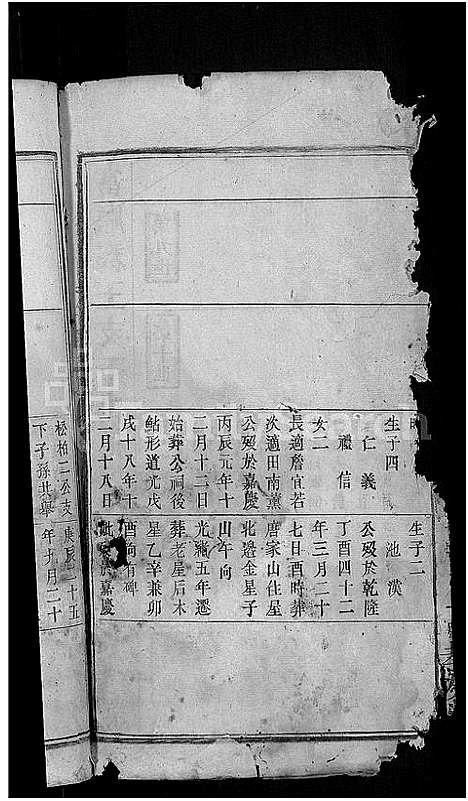 生子四
仁義
禮信
女二
長適詹宜若
次適田南薰
公歿於嘉慶
丙辰元年十
二月十二日
始葬公祠後
鮎形道光戊
戌十八年十
二月十八日
生子二
池漢
公歿於乾隆
丁酉四十二
年三月二十
七日酉時葬
唐家山住屋
北邊金星子
山午向
光緒五年遷
葬老屋后木
星乙辛兼卯
酉向有碑
於嘉慶
松柏二公支
下子孫共舉
庚辰二十五
年九月二十